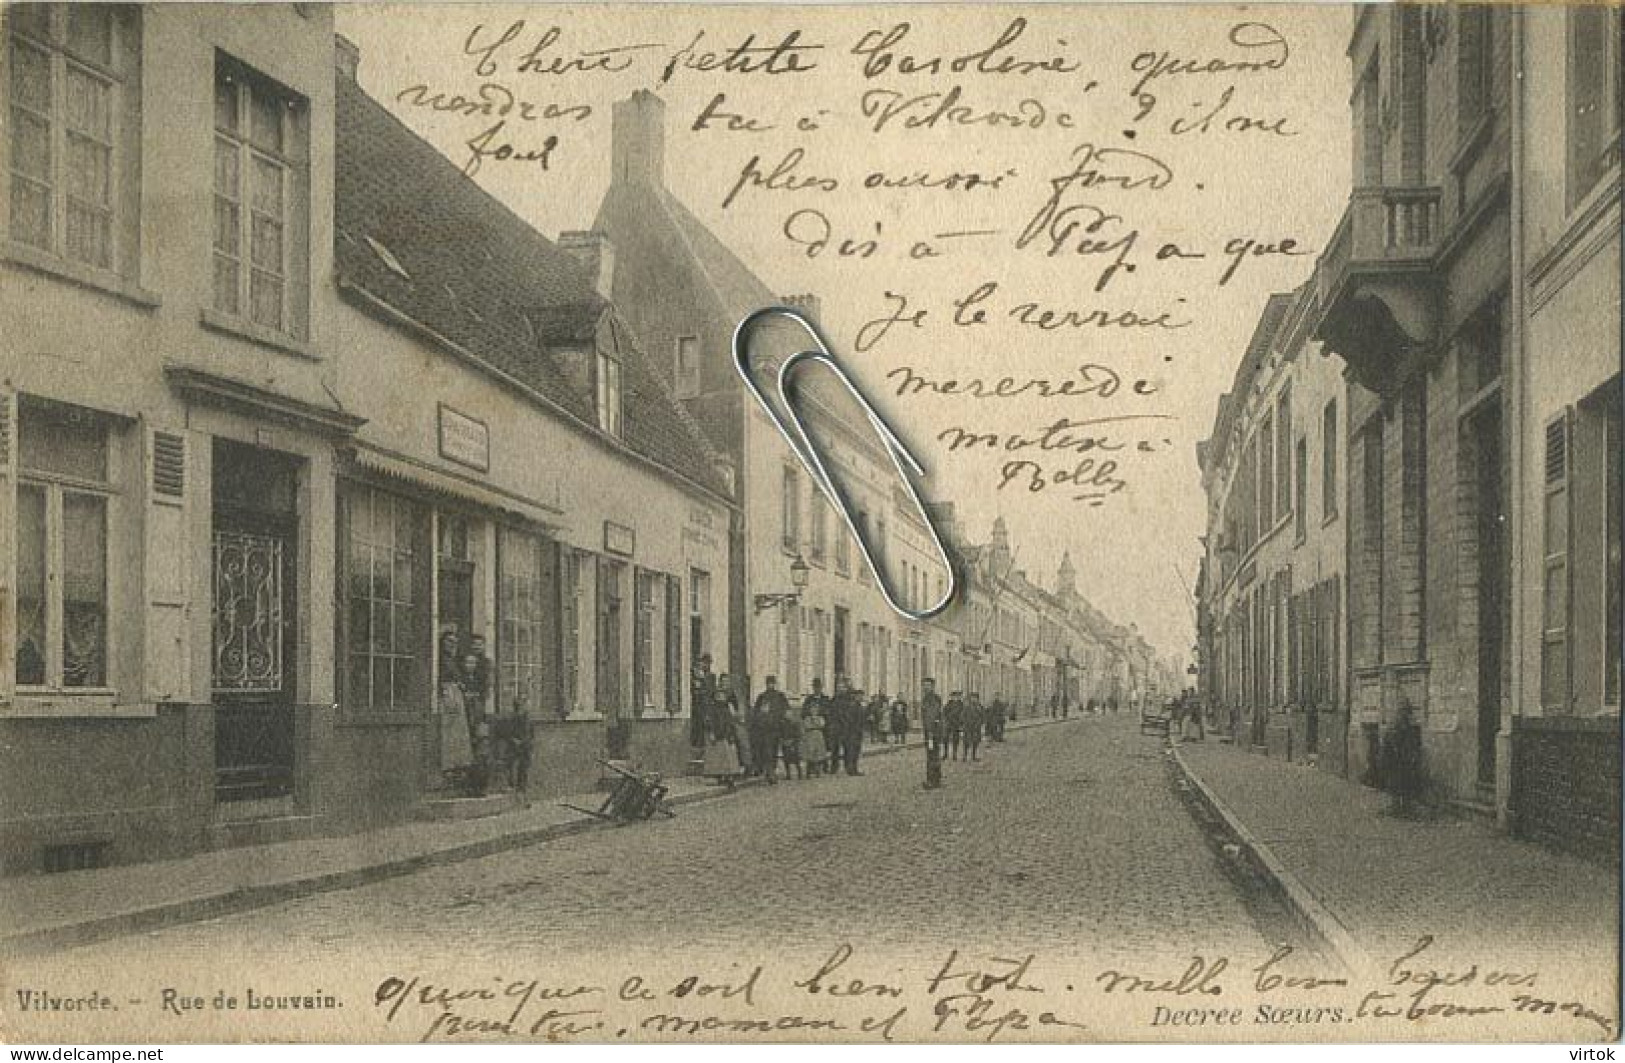 Cheri petite Caroline, quand
viendras tu à Vilvorde ? il ne
fait plus aussi froid.
dis à Papa que
je le verrai
mercredi
matin à
quoique ce soit bien tôt. mille bons baisers
pour tu. maman et Papa ta bonne
Vilvorde. - Rue de Louvain.
Decree Sœurs.
virtok
delcampe.net